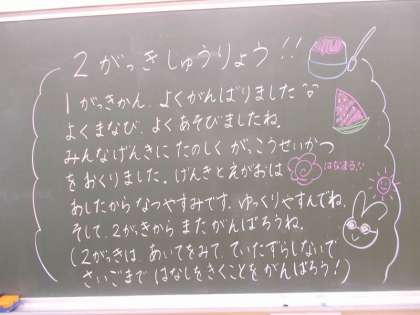 2がっきしゅうりょう!!
1がっきかん、よくがんばりました
よくまなび、よくあそびましたね。
みんなげんきにたのしくがっこうせいかつ
をおくりました。げんきとえがおは はなまる!!
あしたからなつやすみです。ゆっくりやすんでね。
そして、2がっきからまたがんばろうね。
(2がっきは、あいてをみて、ていたずらしないで
さいごまではなしをきくことをがんばろう!)